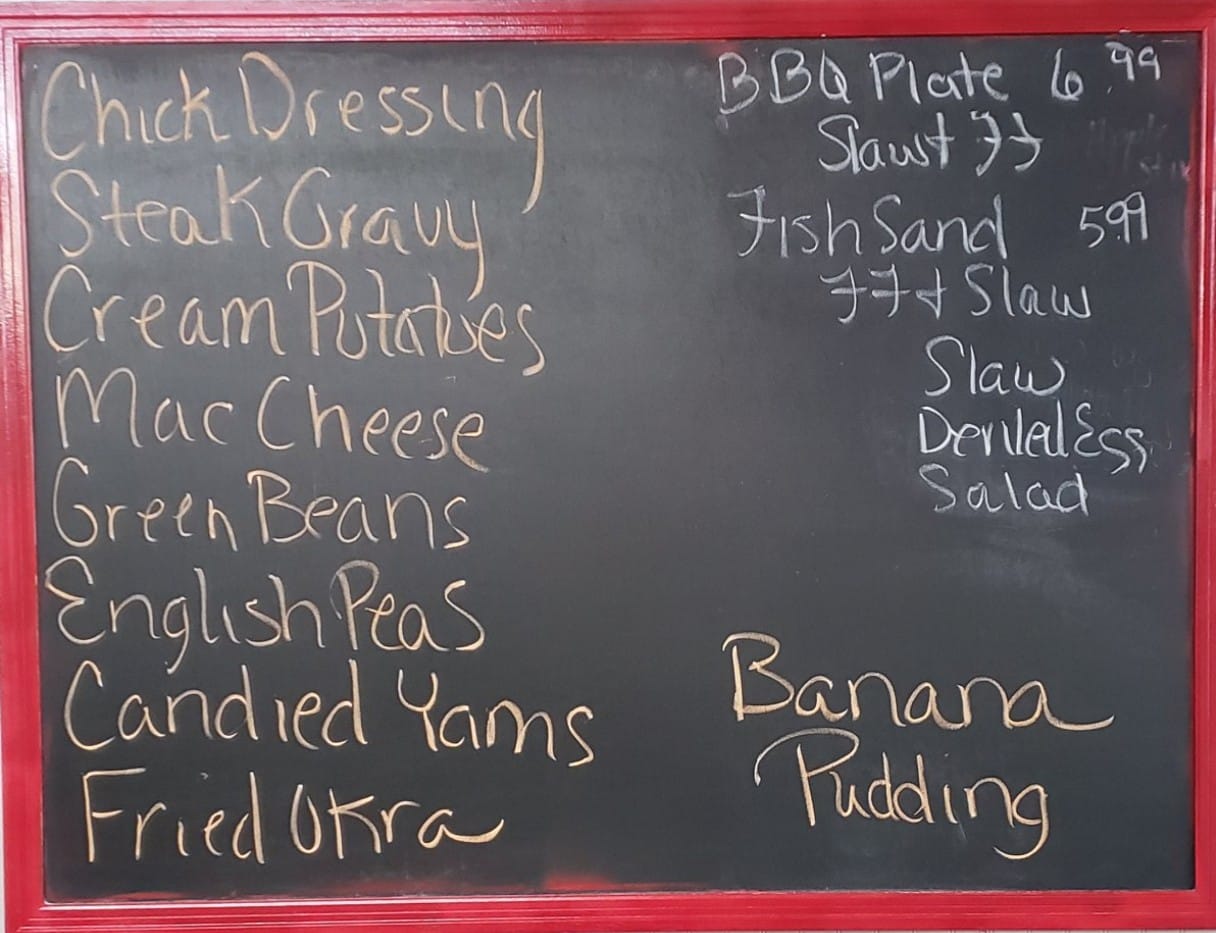 Chick Dressing
Steak Gravy
Cream Potatoes
Mac Cheese
Green Beans
English Peas
Candied Yams
Fried Okra
BBQ Plate 6.99
Slaw + FF
Fish Sand 5.99
FF + Slaw
Slaw
Deviled Egg
Salad
Banana
Pudding